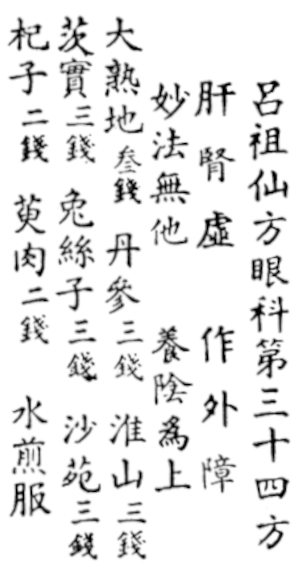 呂祖仙方眼科第三十四方
肝腎虛 作外障
妙法無他 養陰爲上
大熟地叁錢 丹參三錢 淮山三錢
茨實三錢 兔絲子三錢 沙苑三錢
杞子二錢 萸肉二錢 水煎服